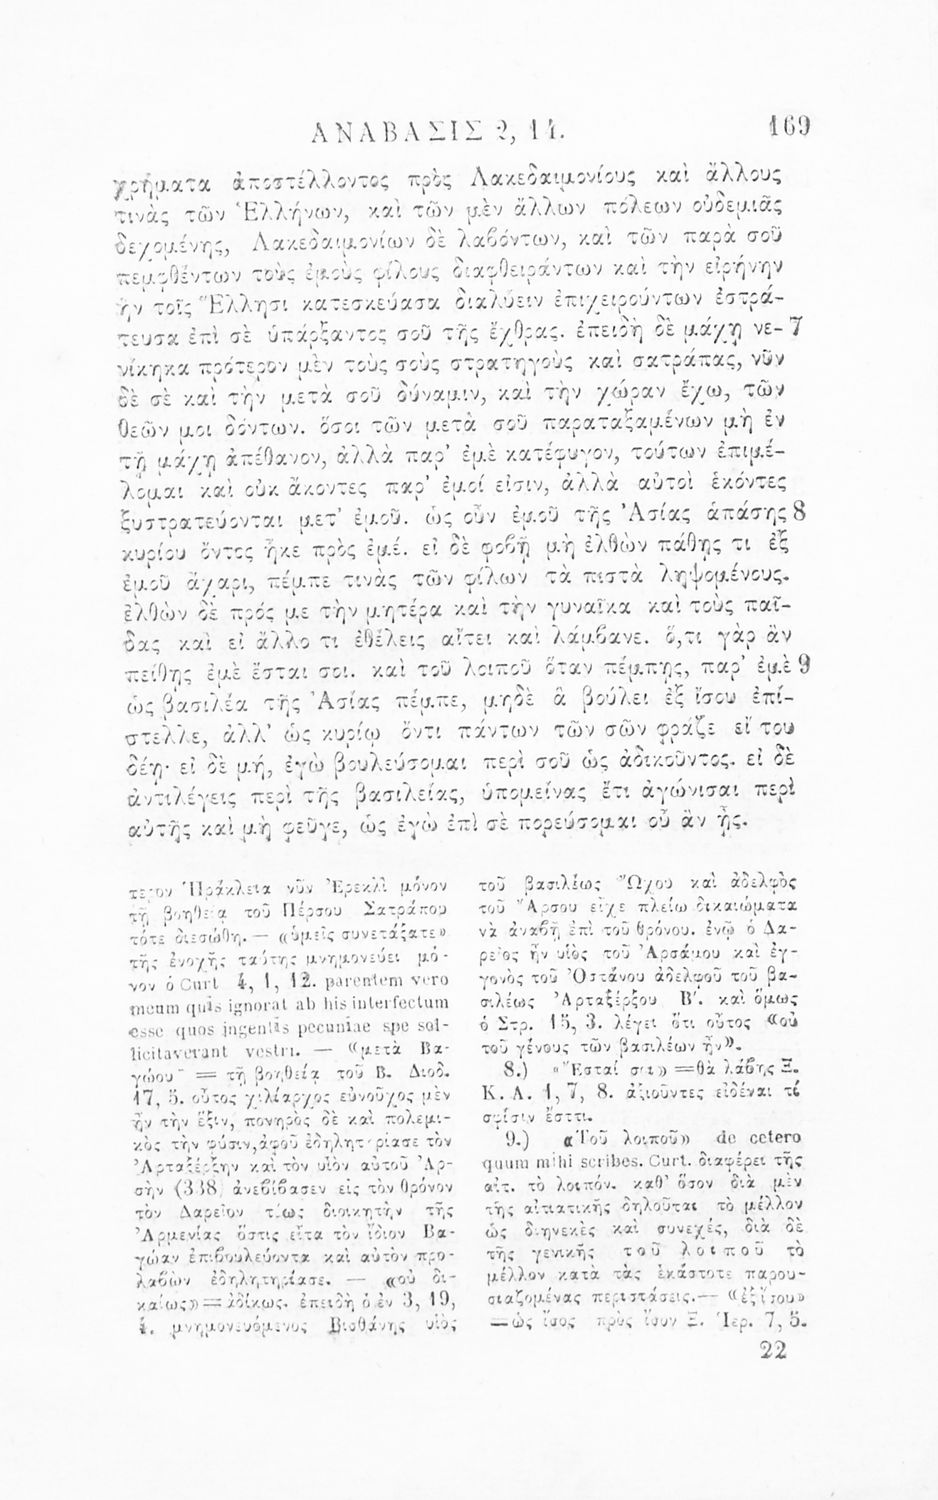 ΑΝΑΒΑΣΙΣ 2, 14. 169
χρήματα ἀποστέλλοντος πρὸς Λακεδαιμονίους καὶ ἄλλους
τινὰς τῶν Ἑλλήνων, καὶ τῶν μὲν ἄλλων πόλεων οὐδεμιᾶς
δεχομένης, Λακεδαιμονίων δὲ λαβόντων, καὶ τῶν παρὰ σοῦ
πεμφθέντων τοὺς ἐμοὺς φίλους διαφθειράντων καὶ τὴν εἰρήνην
ἣν τοῖς Ἕλλησι κατεσκεύασα διαλύειν ἐπιχειρούντων ἐστρά-
τευσα ἐπὶ σὲ ὑπάρξαντος σοῦ τῆς ἔχθρας. ἐπειδὴ δὲ μάχῃ νε- 7
νίκηκα πρότερον μὲν τοὺς σοὺς στρατηγοὺς καὶ σατράπας, νῦν
δὲ σὲ καὶ τὴν μετὰ σοῦ δύναμιν, καὶ τὴν χώραν ἔχω, τῶν
θεῶν μοι δόντων. ὅσοι τῶν μετὰ σοῦ παραταξαμένων μὴ ἐν
τῇ μάχῃ ἀπέθανον, ἀλλὰ παρ' ἐμὲ κατέφυγον, τούτων ἐπιμέ-
λομαι καὶ οὐκ ἄκοντες παρ' ἐμοί εἰσιν, ἀλλὰ αὐτοὶ ἑκόντες
ξυστρατεύονται μετ' ἐμοῦ. ὡς οὖν ἐμοῦ τῆς Ἀσίας ἁπάσης 8
κυρίου ὄντος ἧκε πρὸς ἐμέ. εἰ δὲ φοβῇ μὴ ἐλθὼν πάθῃς τι ἐξ
ἐμοῦ ἄχαρι, πέμπε τινὰς τῶν φίλων τὰ πιστὰ ληψομένους.
ἐλθὼν δὲ πρός με τὴν μητέρα καὶ τὴν γυναῖκα καὶ τοὺς παῖ-
δας καὶ εἰ ἄλλο τι ἐθέλεις αἴτει καὶ λάμβανε. ὅ,τι γὰρ ἂν
πείθῃς ἐμὲ ἔσται σοι. καὶ τοῦ λοιποῦ ὅταν πέμπῃς, παρ' ἐμὲ 9
ὡς βασιλέα τῆς Ἀσίας πέμπε, μηδὲ ἃ βούλει ἐξ ἴσου ἐπί-
στελλε, ἀλλ' ὡς κυρίῳ ὄντι πάντων τῶν σῶν φράζε εἴ του
δέῃ· εἰ δὲ μή, ἐγὼ βουλεύσομαι περὶ σοῦ ὡς ἀδικοῦντος. εἰ δὲ
ἀντιλέγεις περὶ τῆς βασιλείας, ὑπομείνας ἔτι ἀγώνισαι περὶ
αὐτῆς καὶ μὴ φεῦγε, ὡς ἐγὼ ἐπὶ σὲ πορεύσομαι οὗ ἂν ᾖς.
τερον Ἡράκλεια νῦν Ἐρεκλὶ μόνον
τῇ βοηθείᾳ τοῦ Πέρσου Σατράπου
τότε διεσώθη. — «ὑμεῖς συνετάξατε»
τῆς ἐνοχῆς ταύτης μνημονεύει μό-
νον ὁ Curt 4, 1, 12. parentem vero
meum quis ignorat ab his interfectum
esse quos ingentis pecuniae spe sol-
licitaverant vestri. — «μετὰ Βα-
γώου» = τῇ βοηθείᾳ τοῦ Β. Διοδ.
17, 5. οὗτος χιλίαρχος εὐνοῦχος μὲν
ἦν τὴν ἕξιν, πονηρὸς δὲ καὶ πολεμι-
κὸς τὴν φύσιν, ἀφοῦ ἐδηλητηρίασε τὸν
Ἀρταξέρξην καὶ τὸν υἱὸν αὐτοῦ Ἀρ-
σὴν (338) ἀνεβίβασεν εἰς τὸν θρόνον
τὸν Δαρεῖον τέως διοικητὴν τῆς
Ἀρμενίας ὅστις εἶτα τὸν ἴδιον Βα-
γώαν ἐπιβουλεύοντα καὶ αὐτὸν προ-
λαβὼν ἐδηλητηρίασε. — «οὐ δι-
καίως» = ἀδίκως. ἐπειδὴ ὁ ἐν 3, 19,
4. μνημονευόμενος Βισθάνης υἱὸς
τοῦ βασιλέως Ὤχου καὶ ἀδελφὸς
τοῦ Ἄρσου εἶχε πλείω δικαιώματα
νὰ ἀναβῇ ἐπὶ τοῦ θρόνου. ἐνῷ ὁ Δα-
ρεῖος ἦν υἱὸς τοῦ Ἀρσάμου καὶ ἐγ-
γονὸς τοῦ Ὀστάνου ἀδελφοῦ τοῦ βα-
σιλέως Ἀρταξέρξου Β'. καὶ ὅμως
ὁ Στρ. 15, 3. λέγει ὅτι οὗτος «οὐ
τοῦ γένους τῶν βασιλέων ἦν».
8.) «Ἔσταί σοι» = θὰ λάβῃς Ξ.
Κ. Α. 1, 7, 8. ἀξιοῦντες εἰδέναι τί
σφίσιν ἔσται.
9.) «Τοῦ λοιποῦ» de cetero
quum mihi scribes. Curt. διαφέρει τῆς
αἰτ. τὸ λοιπόν. καθ' ὅσον διὰ μὲν
τῆς αἰτιατικῆς δηλοῦται τὸ μέλλον
ὡς διηνεκὲς καὶ συνεχές, διὰ δὲ
τῆς γενικῆς τοῦ λοιποῦ τὸ
μέλλον κατὰ τὰς ἑκάστοτε παρου-
σιαζομένας περιστάσεις. — «ἐξ ἴσου»
= ὡς ἴσος πρὸς ἴσον Ξ. Ἱερ. 7, 5.
22